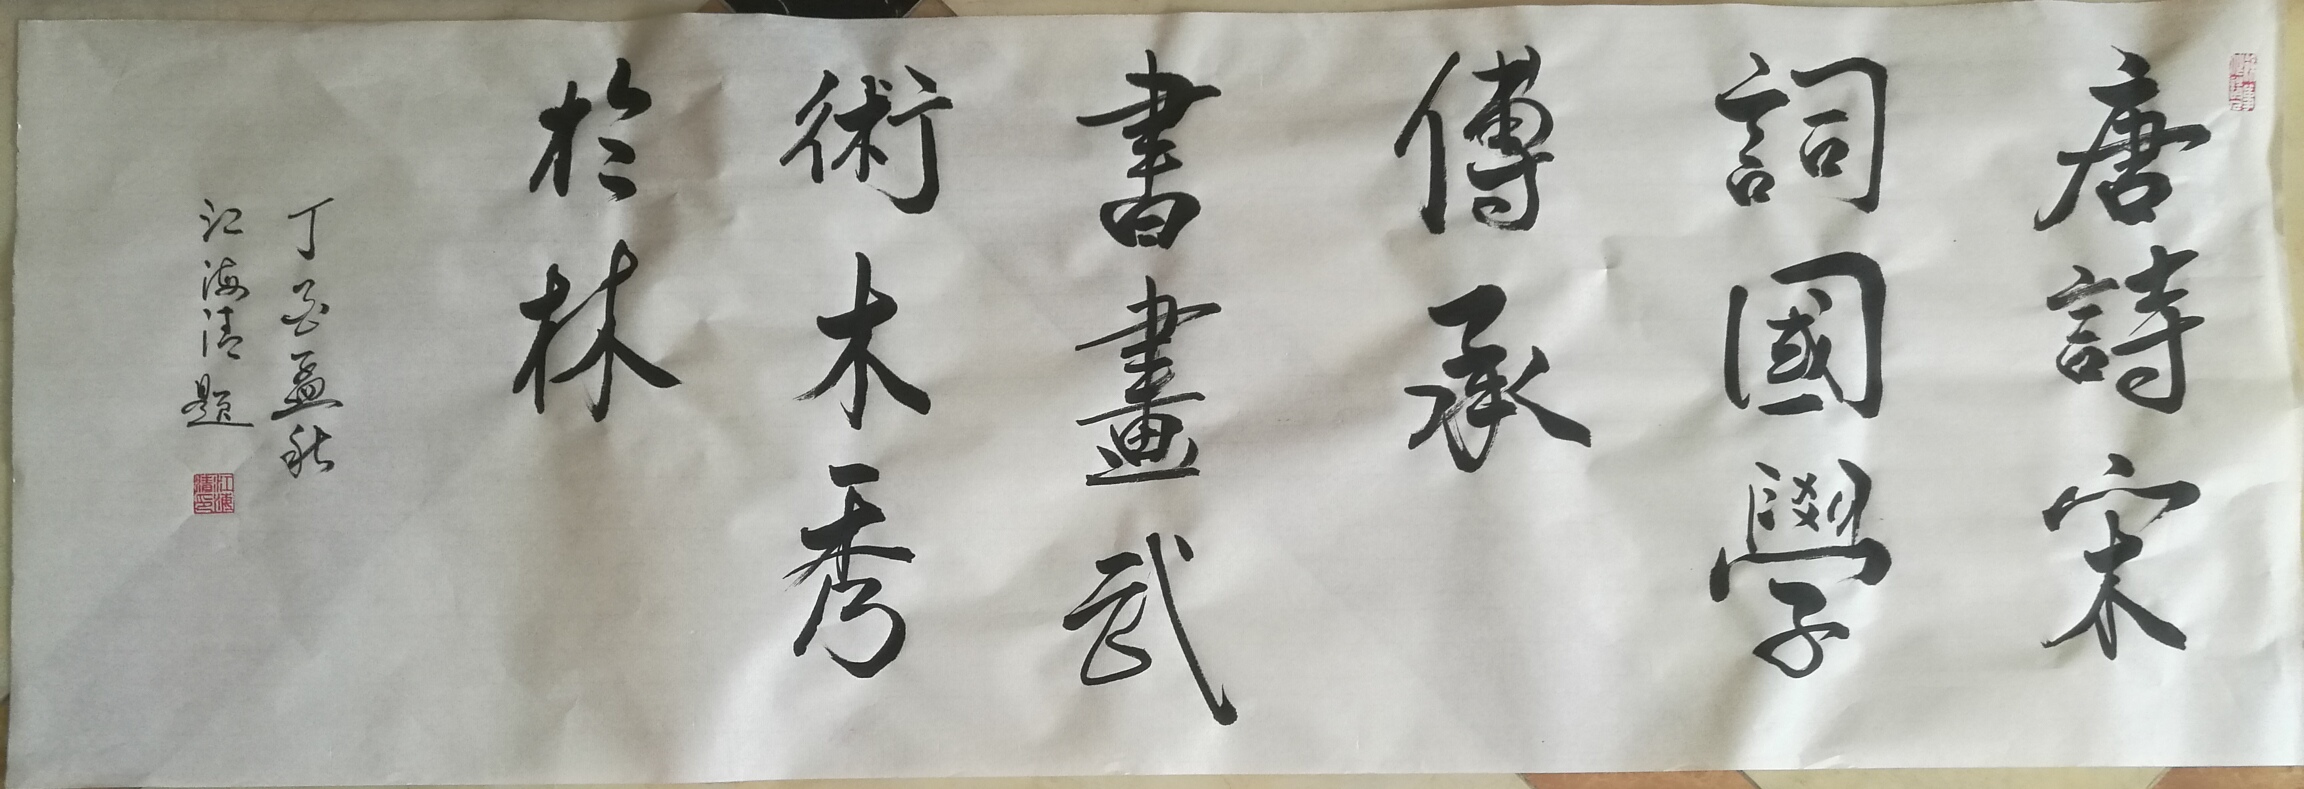 唐詩宋
詞國學
傳承
書畫武
術木秀
於林
丁酉孟秋
江海清題
江海清印